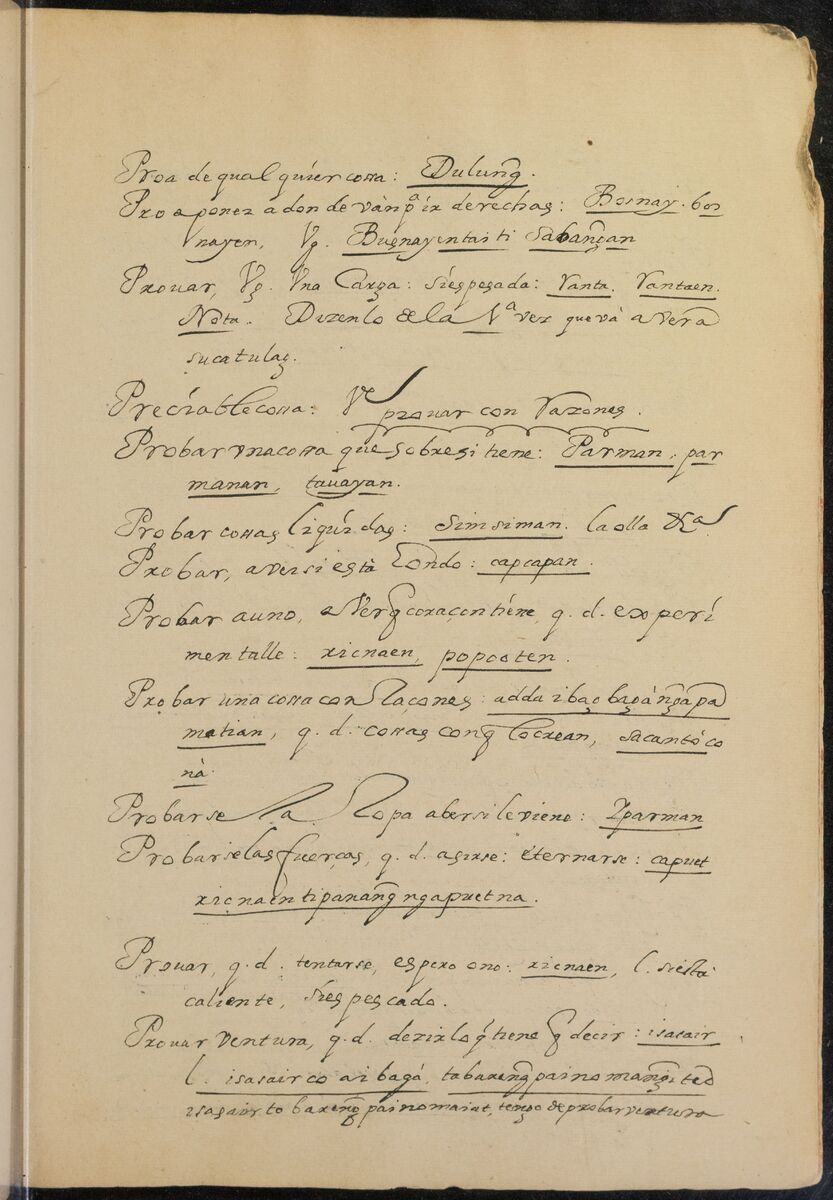 Proa de qual quier cossa: Dulung̃.
Pro a poner a don de vàn pª ir derechas: Bosnay. bos
nayen, Vg. Busnayentaiti Sabang̃an
Prouar, Vg. Vna Carga: siespesada: Yanta. Yantaen.
Nota. Dizenlo de la 1ª vez que và a vera
sucatulag.
Preciable cossa: Vel prouar con Razones.
Probar vna cossa que sobresi tiene: Parman. par
manan, tauayan.
Probar cossas liquidas: Simsiman. la olla &ª
Probar, aversi està hondo: capcapan.
Probar auno, aVerq̃ coraçon tiene, q. d. experi
mentalle: xicnaen, popooten.
Probar una cossa con Raçones: adda ibag bagàng̃a pa
matian, q. d. cossas conq̃ locrean, sacantóco
nà.
Probarse la Ropa abersi leviene: Yparman
Probarse las fuerças, q. d. asirse: éternarse: capuet
xicnaentipanang̃ ngapuet na.
Prouar, q. d. tentarse, espero ono: xicnaen, l. siestà
caliente, siespescado.
Prouar ventura, q. d. dezirlo q̃ tiene q̃ decir: isasair
l. isasair co ai bagá, tabareng̃ paino mang̃ited
isasair to bareng̃ painomaiat, tengo de probar ventura